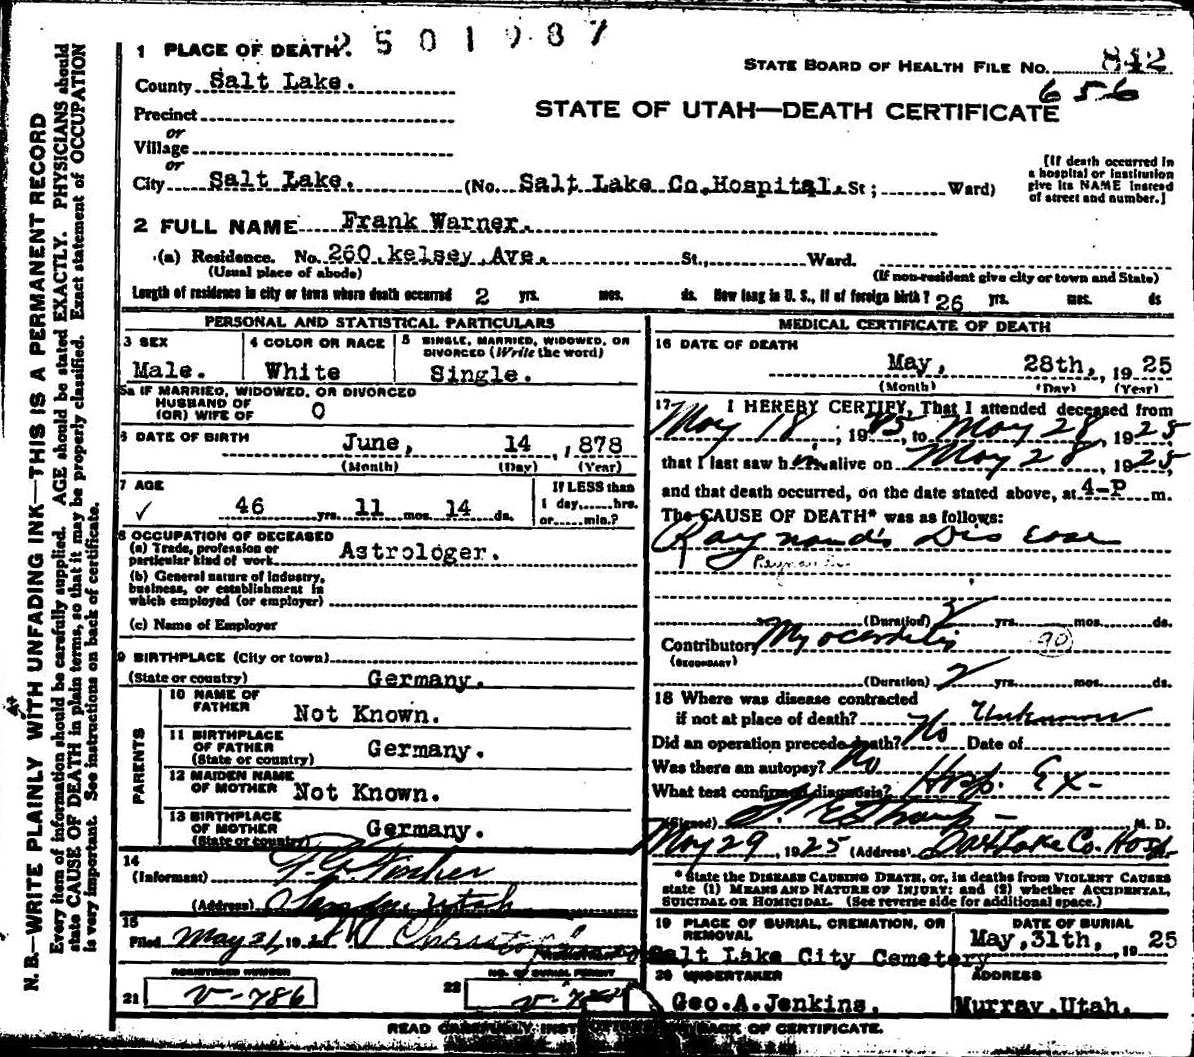 2501987
1 PLACE OF DEATH.
STATE BOARD OF HEALTH FILE No. 842
656
County Salt Lake.
STATE OF UTAH—DEATH CERTIFICATE
Precinct
or
Village
or
City Salt Lake. (No. Salt Lake Co.Hospital. St; Ward)
[If death occurred in
a hospital or institution
give its NAME instead
of street and number.]
2 FULL NAME Frank Warner.
(a) Residence. No. 260 kelsey Ave. St., Ward.
(Usual place of abode) (If non-resident give city or town and State)
Length of residence in city or town where death occurred 2 yrs. mos. ds. How long in U. S., if of foreign birth? 26 yrs. mos. ds
PERSONAL AND STATISTICAL PARTICULARS
3 SEX
Male.
4 COLOR OR RACE
White
5 SINGLE, MARRIED, WIDOWED, OR
DIVORCED (Write the word)
Single.
5a IF MARRIED, WIDOWED, OR DIVORCED
HUSBAND OF
(OR) WIFE OF O
6 DATE OF BIRTH June, 14 ,1878
(Month) (Day) (Year)
7 AGE
46 yrs. 11 mos. 14 ds.
If LESS than
1 day,......hrs.
or......min.?
8 OCCUPATION OF DECEASED
(a) Trade, profession or
particular kind of work Astrologer.
(b) General nature of industry,
business, or establishment in
which employed (or employer)
(c) Name of Employer
9 BIRTHPLACE (City or town)
(State or country) Germany.
PARENTS
10 NAME OF
FATHER Not Known.
11 BIRTHPLACE
OF FATHER
(State or country) Germany.
12 MAIDEN NAME
OF MOTHER Not Known.
13 BIRTHPLACE
OF MOTHER
(State or country) Germany.
14
(Informant)
(Address) Utah
15
Filed May 31, 192
REGISTERED NUMBER
21 V-786
NO. OF BURIAL PERMIT
22
MEDICAL CERTIFICATE OF DEATH
16 DATE OF DEATH
May, 28th, , 1925
(Month) (Day) (Year)
17 I HEREBY CERTIFY, That I attended deceased from
May 18, 1925, to May 28, 1925
that I last saw him alive on May 28, 1925,
and that death occurred, on the date stated above, at 4-P m.
The CAUSE OF DEATH* was as follows:
Raynauds Disease
(Duration) 2 yrs. mos. ds.
Contributory Myocarditis 90
(SECONDARY)
(Duration) 2 yrs. mos. ds.
18 Where was disease contracted
if not at place of death? Unknown
Did an operation precede death? No Date of
Was there an autopsy? No
What test confirmed diagnosis? Hosp. Ex-
(Signed) M. D.
May 29, 1925 (Address) Salt Lake Co. Hosp
* State the DISEASE CAUSING DEATH, or, in deaths from VIOLENT CAUSES
state (1) MEANS AND NATURE OF INJURY; and (2) whether ACCIDENTAL,
SUICIDAL OR HOMICIDAL. (See reverse side for additional space.)
19 PLACE OF BURIAL, CREMATION, OR
REMOVAL
Salt Lake City Cemetery
DATE OF BURIAL
May,31th, 1925
20 UNDERTAKER
Geo.A.Jenkins.
ADDRESS
Murray.Utah.
READ CAREFULLY INSTRUCTIONS ON BACK OF CERTIFICATE.
N. B.—WRITE PLAINLY WITH UNFADING INK—THIS IS A PERMANENT RECORD
Every item of information should be carefully supplied. AGE should be stated EXACTLY. PHYSICIANS should
state CAUSE OF DEATH in plain terms, so that it may be properly classified. Exact statement of OCCUPATION
is very important. See instructions on back of certificate.